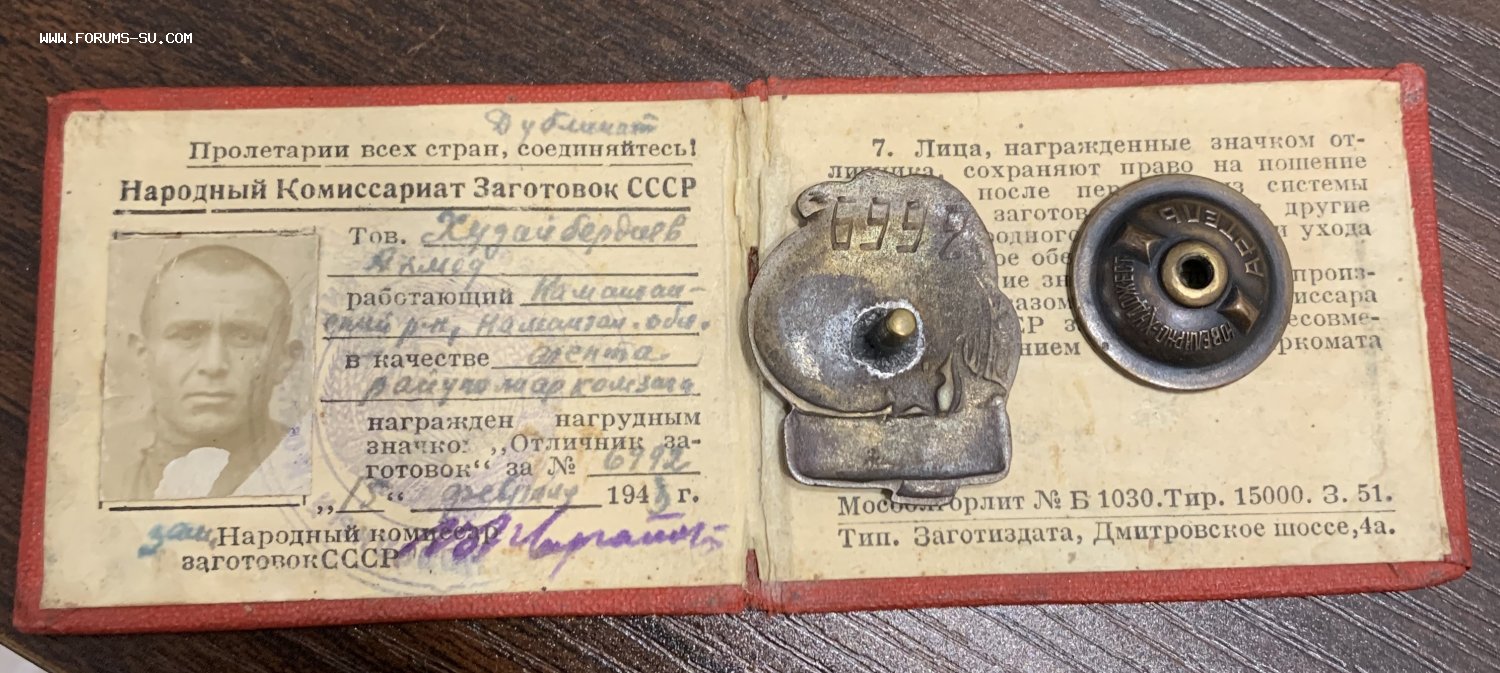 WWW.FORUMS-SU.COM
Дубликат
Пролетарии всех стран, соединяйтесь!
Народный Комиссариат Заготовок СССР
Тов. Худайбердиев
Ахмед
работающий Наманган-
ский р-н, Наманган. обл.
в качестве агента
райуполнаркомзага
награжден нагрудным
значко: „Отличник за-
готовок“ за № 6992
„15“ февраля 194 г.
зам. Народный комиссар
заготовок СССР
7. Лица, награжденные значком от-
личника, сохраняют право на ношение
после из системы
заготов другие
родного и ухода
ое обе
ие зн произ-
азом миссара
СР з есовме-
нием ркомата
Мособлгорлит № Б 1030. Тир. 15000. З. 51.
Тип. Заготиздата, Дмитровское шоссе, 4а.
6992
АРТЕЛЬ
ЮВЕЛИРНО-ХУДОЖЕСТ